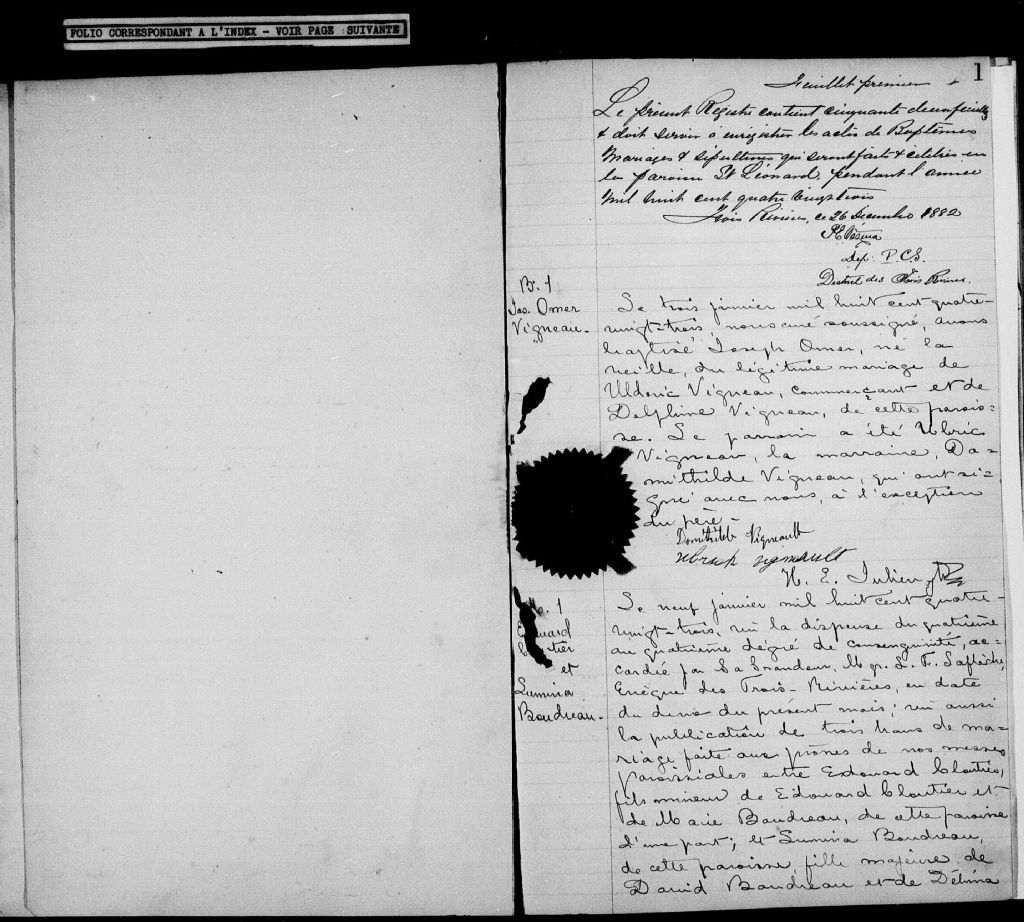 FOLIO CORRESPONDANT A L'INDEX - VOIR PAGE SUIVANTE
1
Feuillet premier
Le présent Registre contient cinquante deux feuillets
& doit servir à enrégistrer les actes de Baptêmes
Mariages & sépultures qui seront faits & célébrés en
la paroisse St Léonard, pendant l'année
mil huit cent quatre vingt trois
Trois Rivières, ce 26 Décembre 1882
Dép. P.C.S.
District des Trois Rivières.
B. 1
Jos. Omer
Vigneau.
Le trois janvier mil huit cent quatre-
vingt-trois, nous curé soussigné, avons
baptisé Joseph Omer, né la
veille, du légitime mariage de
Uldoric Vigneau, commerçant et de
Delphine Vigneau, de cette parois-
se. Le parrain a été Ulric
Vigneau, la marraine, Do-
mithilde Vigneau, qui ont si-
gné avec nous, à l'exception
du père.
Domithilde Vigneault
Vigneault
H. E. Julien, Ptre
M. 1
Edouard
Cloutier
et
Lumina
Boudreau.
Le neuf janvier mil huit cent quatre-
vingt-trois, vu la dispense du quatrième
au quatrième dégré de consanguinité, ac-
cordée par Sa Grandeur, Mgr. L. F. Laflèche,
Evêque des Trois-Rivières, en date
du deux du présent mois; vu aussi
la publication de trois bans de ma-
riage faite aux prônes de nos messes
paroissiales entre Edouard Cloutier,
fils mineur de Edouard Cloutier et
de Marie Boudreau, de cette paroisse
d'une part; et Lumina Boudreau,
de cette paroisse, fille majeure de
David Boudreau et de Délima